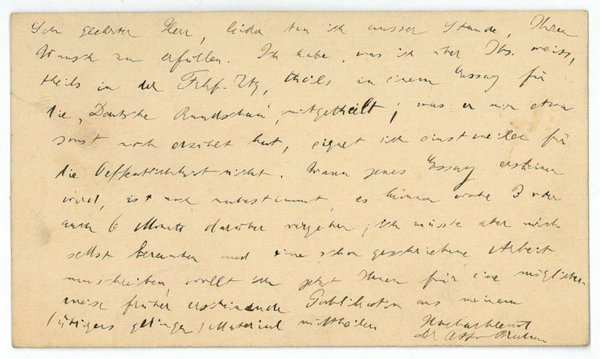 Sehr geehrter Herr, leider bin ich ausser Stande, Ihren
Wunsch zu erfüllen. Ich habe, was ich über Ibs. weiss,
theils in der Frkf. Ztg, theils in einem Essay für
die „Deutsche Rundschau" mitgetheilt; was er mir etwa
sonst noch erzählt hat, eignet sich einstweilen für
die Oeffentlichkeit nicht. Wann jenes Essay erscheinen
wird, ist noch unbestimmt, es können wohl 3 oder
auch 6 Monate darüber vergehen; Ich müsste aber mich
selbst berauben und eine schon geschriebene Arbeit
umschreiben, wollte ich jetzt Ihnen für eine möglicher
weise früher erscheinende Publikation aus meinem
(übrigens geringen) Material mittheilen
Hochachtend
Dr Otto Brahm